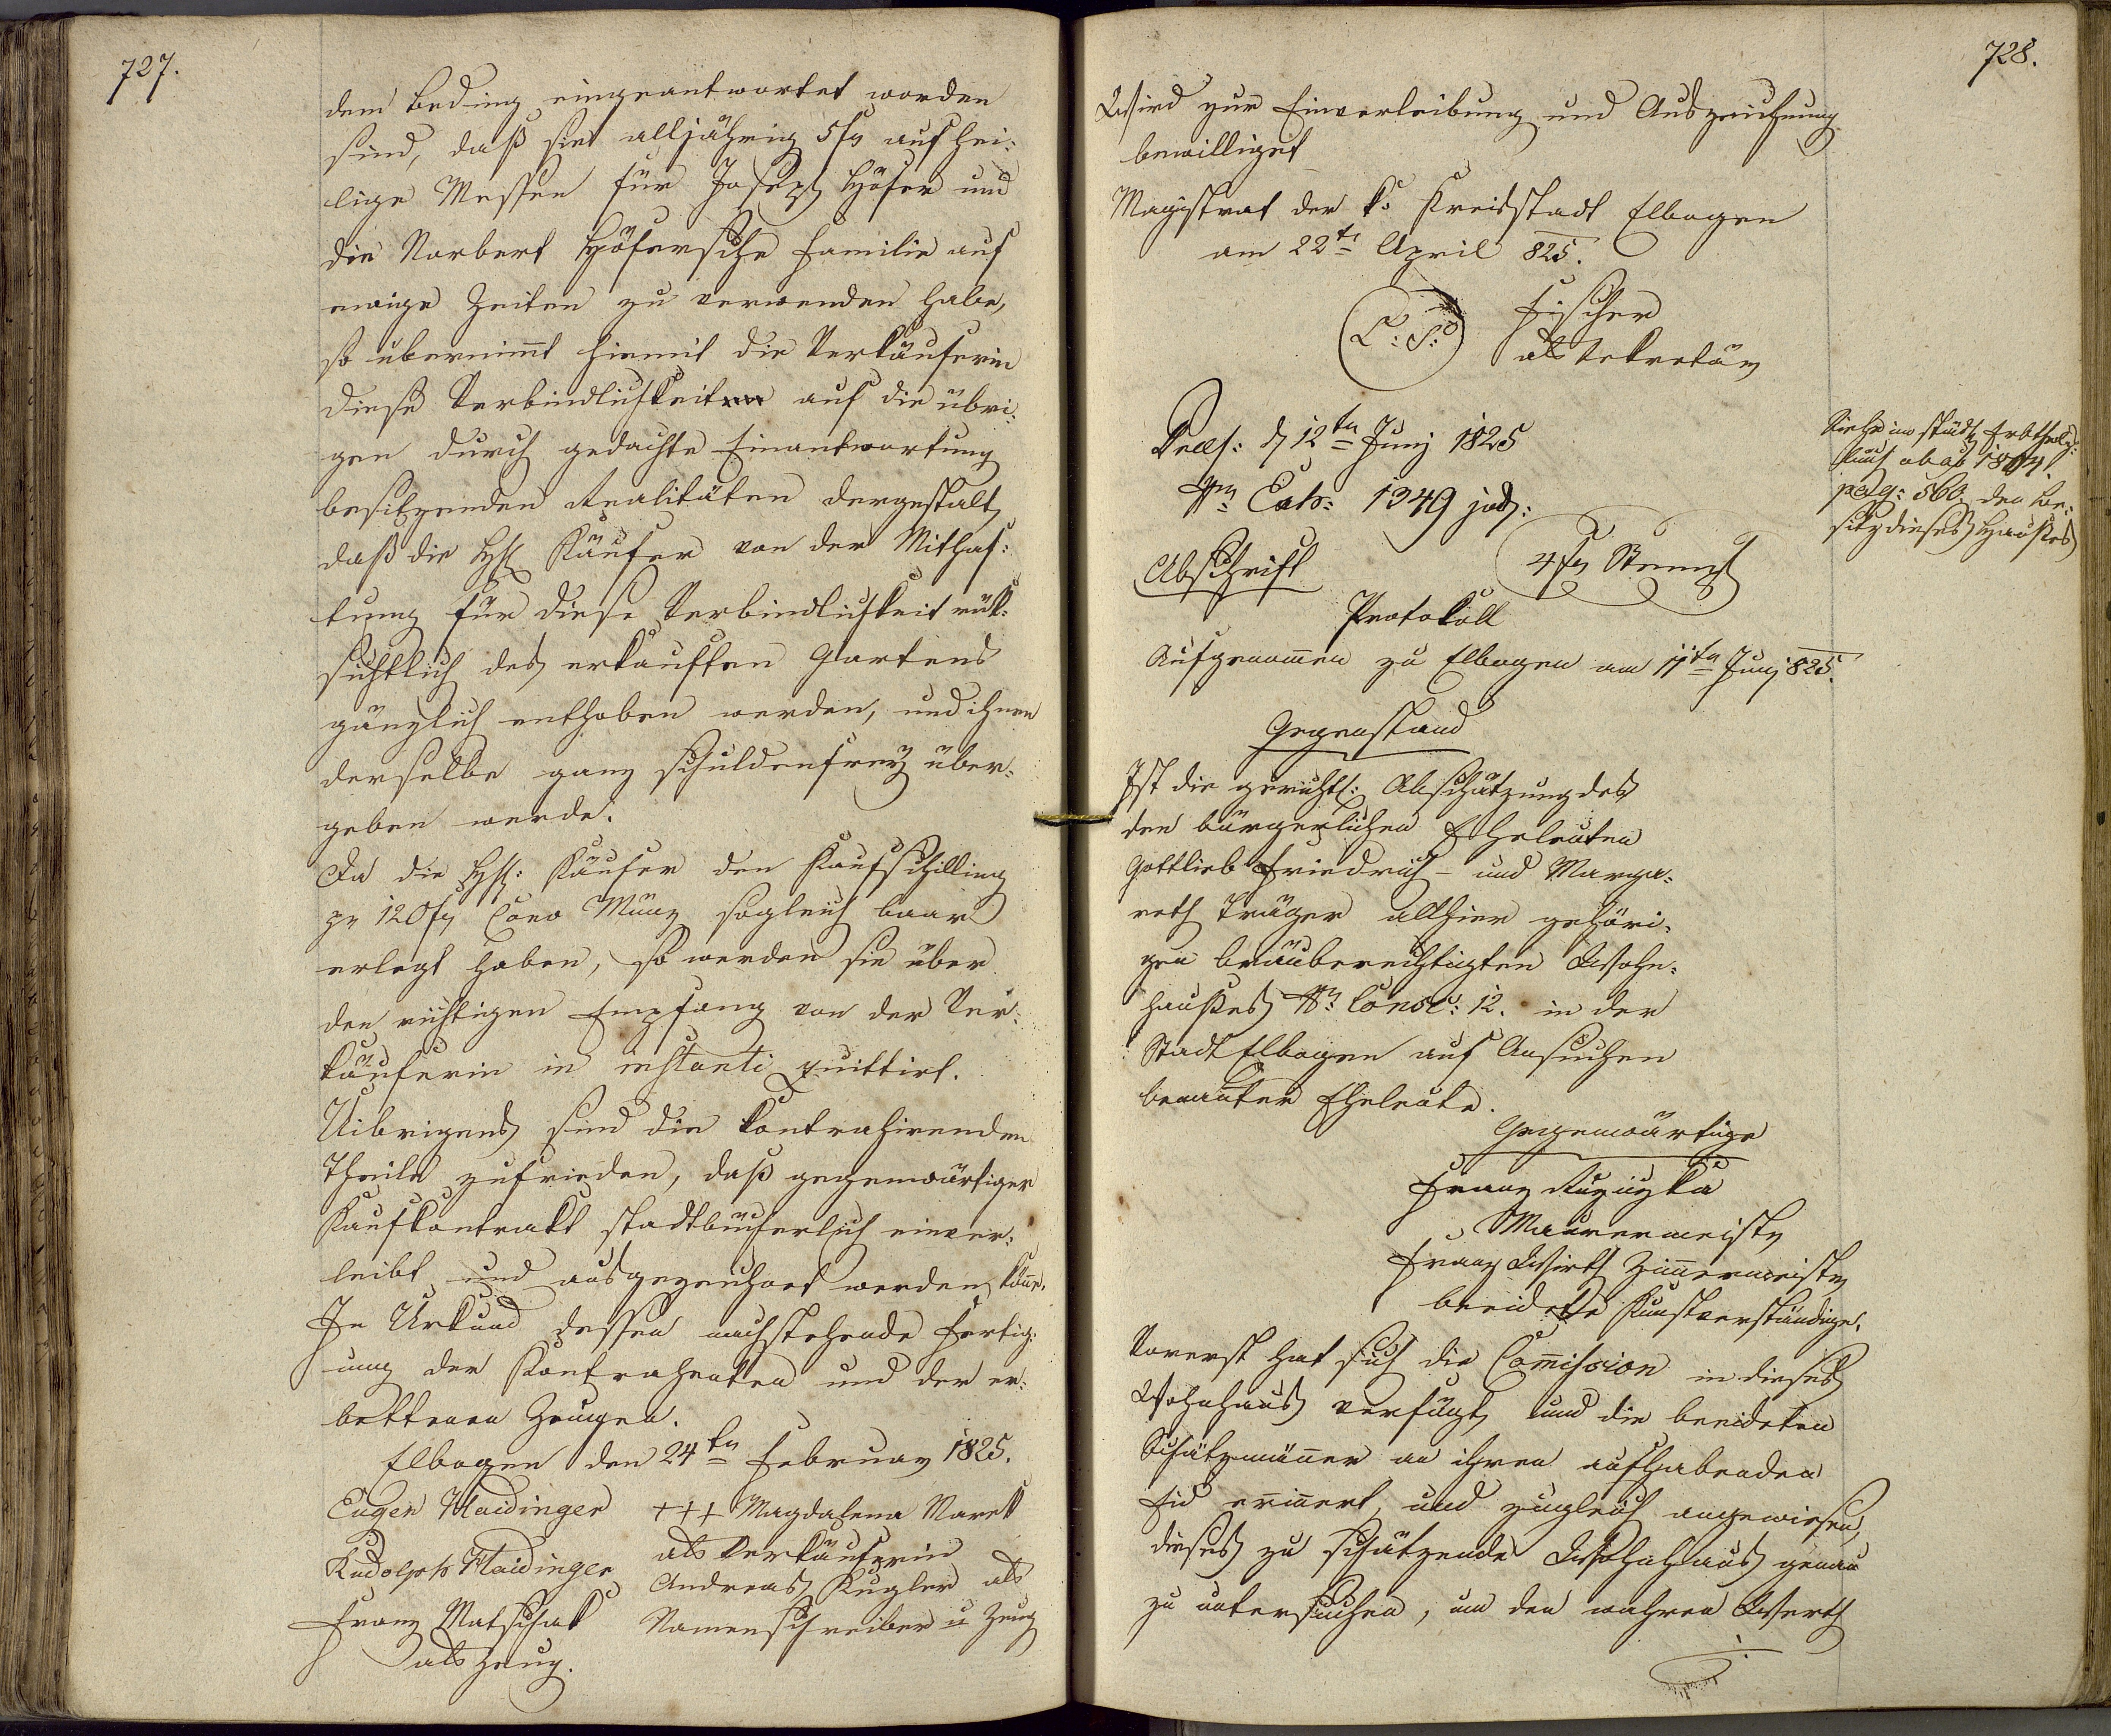 727.
dem Beding eingeantwortet worden
sind, daß sie alljährig 5 fr auf hei-
lige Messen für Joseph Höfer und
die Norbert Höfersche Familie auf
ewige Zeiten zu verwenden habe,
so übernimt hiemit die Verkäuferin
diese Verbindlichkeit auf die übri-
gen durch gedachte Einantwortung
besitzenden Realitäten dergestalt,
daß die Hl. Käufer von der Mithaf-
tung für diese Verbindlichkeit rük-
sichtlich des erkauften Gartens
gänzlich enthoben werden, und ihnen
derselbe ganz schuldenfrey über-
geben werde.
Da die Hl: Käufer den Kaufschilling
pr 120 fr Conv Münz sogleich baar
erlegt haben, so werden sie über
den richtigen Empfang von der Ver-
käuferin in instanti quittirt.
Uibrigens sind die kontrahirenden
Theile zufrieden, daß gegenwärtiger
Kaufkontrakt stadtbücherlich einver-
leibt und ausgezeichnet werden köne.
In Urkund dessen nachstehende Fertig-
ung der Kontrahenten und der er-
bettenen Zeugen.
Elbogen den 24ten Februar 1825.
Eugen Haidinger +++ Magdalena Marek
als Verkäuferin
Rudolph Haidinger Andreas Kugler als
Franz Matschak Namenschreiber u Zeug
als Zeug.
728.
Wird zur Einverleibung und Auszeichnung
bewilliget
Magistrat der k: Kreisstadt Elbogen
am 22t April 825.
L: S: Fischer
als Sekretär
Praes: d 12ten Juny 1825
Nr Exh: 1349 jud:
Siehe im städt
pag: 560. den Be-
sitz dieses Hauses
Abschrift 4 fr Stempl
Protokoll
Aufgenomen zu Elbogen am 11ten Juny 825.
Gegenstand
Ist die gerichtl: Abschätzung des
den bürgerlichen Eheleuten
Gottlieb Friedrich - und Marga-
reth Träger allhier gehöri-
gen bräuberechtigten Wohn-
hauses Nr Consc: 12. in der
Stadt Elbogen auf Ansuchen
benanter Eheleute.
Gegenwärtige
Franz Ruziczka
Maurermeister
Franz Wirth Zimermeister
beeidete Kunstverständige.
Vorerst hat sich die Comission in dieses
Wohnhaus verfügt, und die beeideten
Schätzmäner an ihren aufhabenden
Eid erinert, und zugleich angewiesen,
dieses zu schätzende Wohnhaus genau
zu untersuchen, um den wahren Werth